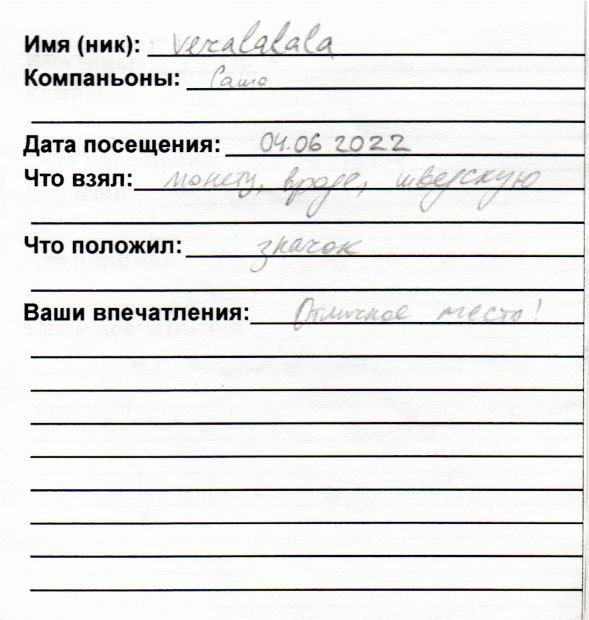 Имя (ник): veralalala
Компаньоны: Саша
Дата посещения: 04.06.2022
Что взял: монету, вроде, шведскую
Что положил: значок
Ваши впечатления: Отличное место!